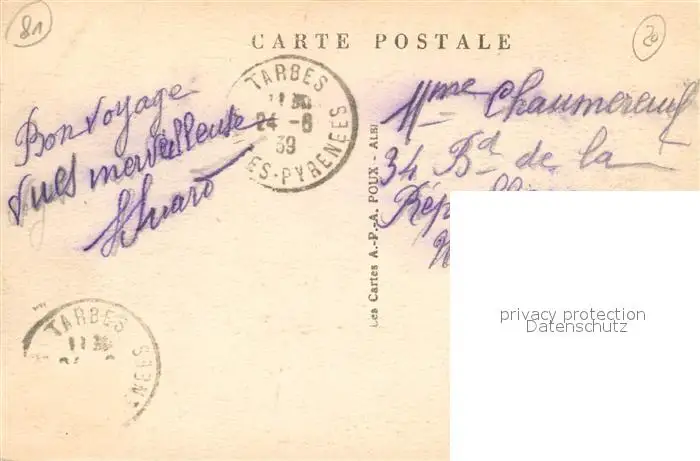 81
20
CARTE POSTALE
TARBES
11 30
24-6
39
ES-PYRENEES
Bon voyage
Vues merveilleuses
Mme Chaumereuil
34 Bd de la
Les Cartes A.-P.-A. POUX - ALBI
TARBES
11 30
privacy protection
Datenschutz